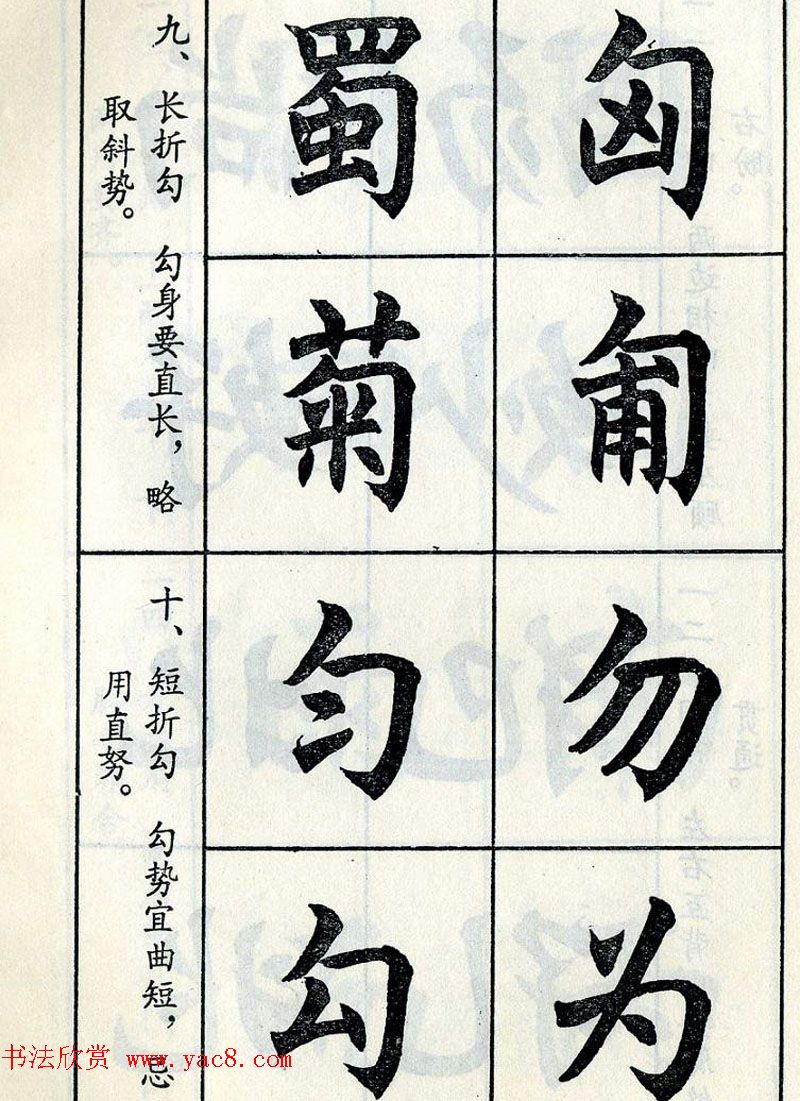 匈
匍
蜀
菊
九、长折勾 勾身要直长，略
取斜势。
勿
为
匀
勾
十、短折勾 勾势宜曲短，忌
用直努。
书法欣赏 www.yac8.com